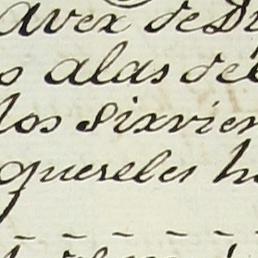 avex de Di
s alas del
los Sixvien
quereles ha